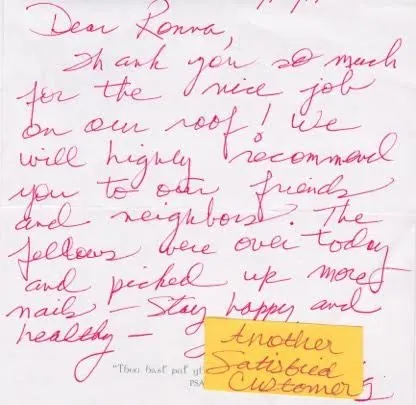 Dear Ronna,
Thank you so much
for the nice job
on our roof! We
will highly recommend
you to our friends
and neighbors. The
fellows were over today
and picked up more
nails — Stay happy and
healthy —
Another
Satisfied
Customer
"Thou hast put gl
PSA